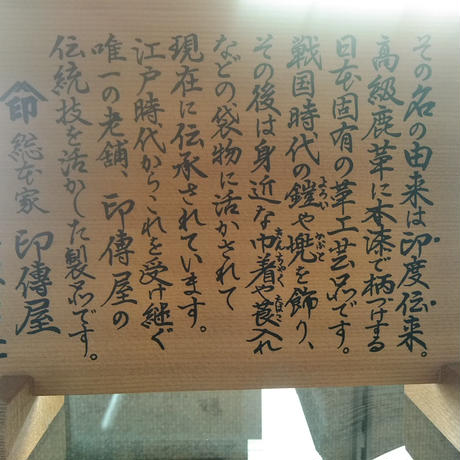 その名の由来は印度伝来。
高級鹿革に本漆で柄つけする
日本固有の革工芸品です。
戦国時代の鎧や兜を飾り、
よろい
かぶと
その後は身近な巾着や莨入れ
きんちゃく
たばこ
などの袋物に活かされて
現在に伝承されています。
江戸時代からこれを受け継ぐ
唯一の老舗、印傳屋の
伝統技を活かした製品です。
印 総本家 印傳屋